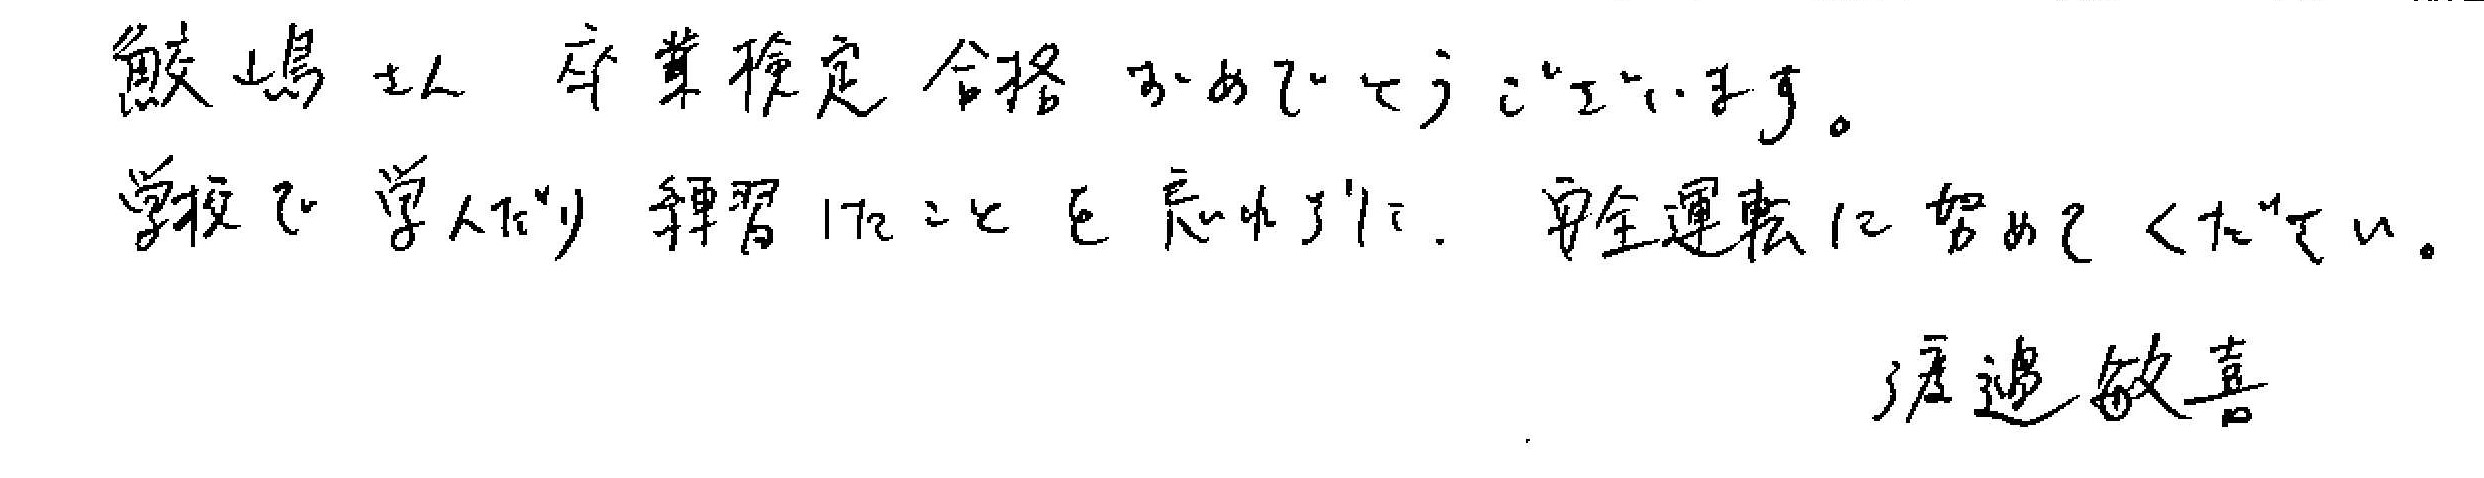 鮫嶋さん 卒業検定 合格 おめでとうございます。
学校で 学んだり 練習したことを 忘れずに、安全運転に努めてください。
渡邉敏喜